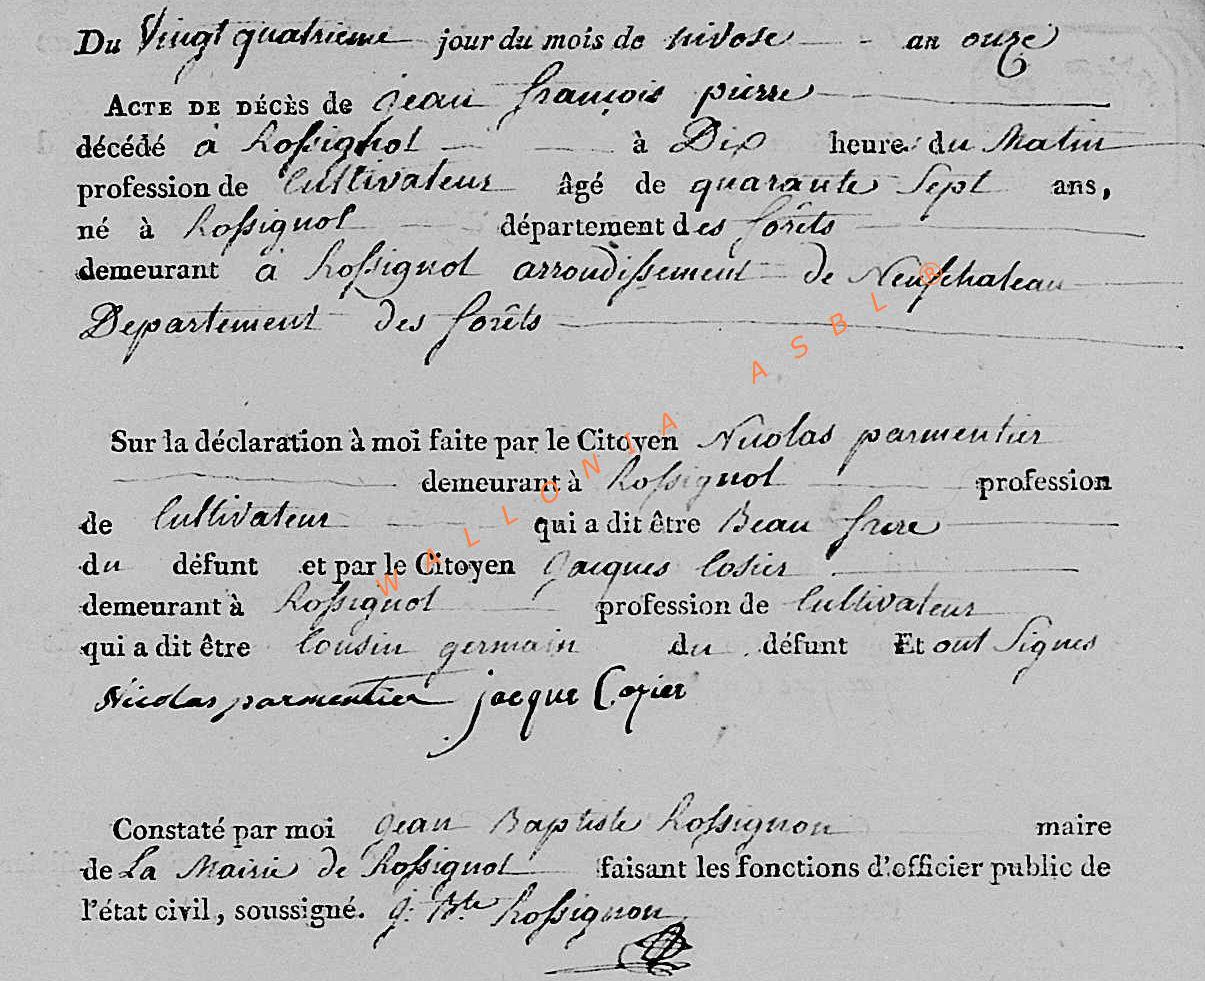 Du Vingt quatrieme jour du mois de nivose an onze
ACTE DE DÉCÈS de jean françois pierre
décédé à Rossignol à Dix heures du Matin
profession de Cultivateur âgé de quarante Sept ans,
né à Rossignol département des forêts
demeurant à Rossignol arrondissement de Neufchateau
Departement des forêts
Sur la déclaration à moi faite par le Citoyen Nicolas parmentier
demeurant à Rossignol profession
de Cultivateur qui a dit être Beau frere
du défunt et par le Citoyen Jacques Cosier
demeurant à Rossignol profession de Cultivateur
qui a dit être Cousin germain du défunt Et ont Signes
Nicolas parmentier jacque Cozier
Constaté par moi Jean Baptiste Rossignon maire
de La Mairie de Rossignol faisant les fonctions d'officier public de
l'état civil, soussigné. J. Bte Rossignon
WALLONIA ASBL ®